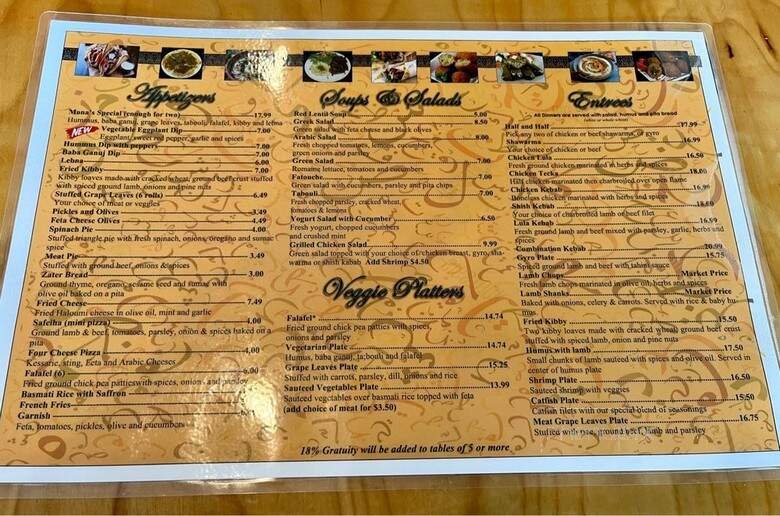 Appetizers
Mona's Special (enough for two) 17.99
Hummus, baba ganuj, grape leaves, tabouli, falafel, kibby and lebna
NEW Vegetable Eggplant Dip 7.00
Eggplant, sweet pepper, garlic and spices
Hummus Dip with peppers 7.00
Baba Ganuj Dip 7.00
Lebna 6.00
Fried Kibby 7.00
Kibby loaves made with cracked wheat, ground beef crust stuffed
with spiced ground lamb, onions and pine nuts
Stuffed Grape Leaves (6 rolls) 6.49
Your choice of meat or veggies
Pickles and Olives 3.49
Feta Cheese Olives 4.99
Spinach Pie 4.00
Stuffed triangle pie with fresh spinach, onions, oregano and sumac
spice
Meat Pie 3.49
Stuffed with ground beef, onions & spices
Zater Bread 3.00
Ground thyme, oregano, sesame seed and sumac with
olive oil baked on a pita
Fried Cheese 7.49
Fried Haloumi cheese in olive oil, mint and garlic
Safeiha (mini pizza) 4.00
Ground lamb & beef, tomatoes, parsley, onion & spices baked on a
pita
Four Cheese Pizza 4.00
Kessarie, string, Feta and Arabic Cheeses
Falafel (6)
Fried ground chick pea patties with spices, onions and parsley
Basmati Rice with Saffron
French Fries
Garnish
Feta, tomatoes, pickles, olive and cucumbers
Soups & Salads
Red Lentil Soup 5.00
Greek Salad 8.50
Green salad with feta cheese and black olives
Arabic Salad 8.00
Fresh chopped tomatoes, lemons, cucumbers,
green onions and parsley
Green Salad 7.00
Romaine lettuce, tomatoes and cucumbers
Fatouche 7.00
Green salad with cucumbers, parsley and pita chips
Tabouli 7.00
Fresh chopped parsley, cracked wheat,
tomatoes & lemons
Yogurt Salad with Cucumber 6.50
Fresh yogurt, chopped cucumbers
and crushed mint
Grilled Chicken Salad 9.99
Green salad topped with your choice of chicken breast, gyro, sha-
warma or shish kabab Add Shrimp $4.50
Veggie Platters
Falafel* 14.74
Fried ground chick pea patties with spices,
onions and parsley
Vegetarian Plate 14.74
Humus, baba ganuj, tabouli and falafel
Grape Leaves Plate 15.25
Stuffed with carrots, parsley, dill, onions and rice
Sauteed Vegetables Plate 13.99
Sauteed vegetables over basmati rice topped with feta
(add choice of meat for $3.50)
Entrees
All Dinners are served with salad, humus and pita bread
Half and Half 17.99
Pick any two of chicken or beef shawarma, or gyro
Shawarma 16.99
Your choice of chicken or beef
Chicken Lula 16.50
Fresh ground chicken marinated in herbs and spices
Chicken Tecka 18.00
chicken marinated then charbroiled over open flame
Chicken Kebab 16.99
Boneless chicken marinated with herbs and spices
Shish Kebab 18.00
Your choice of charbroiled lamb or beef filet
Lula Kebab 16.99
Fresh ground lamb and beef mixed with parsley, garlic, herbs and
spices
Combination Kebab 20.99
Gyro Plate 15.75
Spiced ground lamb and beef with tahini sauce
Lamb Chops Market Price
Fresh lamb chops marinated in olive oil, herbs and spices
Lamb Shanks Market Price
Baked with onions, celery & carrots. Served with rice & baby hu-
mus
Fried Kibby 15.50
Two kibby loaves made with cracked wheat, ground beef crust
stuffed with spiced lamb, onion and pine nuts
Humus with lamb 17.50
Small chunks of lamb sauteed with spices and olive oil. Served in
center of humus plate
Shrimp Plate 16.50
Sauteed shrimp with veggies
Catfish Plate 15.50
Catfish filets with our special blend of seasonings
Meat Grape Leaves Plate 16.75
Stuffed with rice, ground beef, lamb and parsley
18% Gratuity will be added to tables of 5 or more